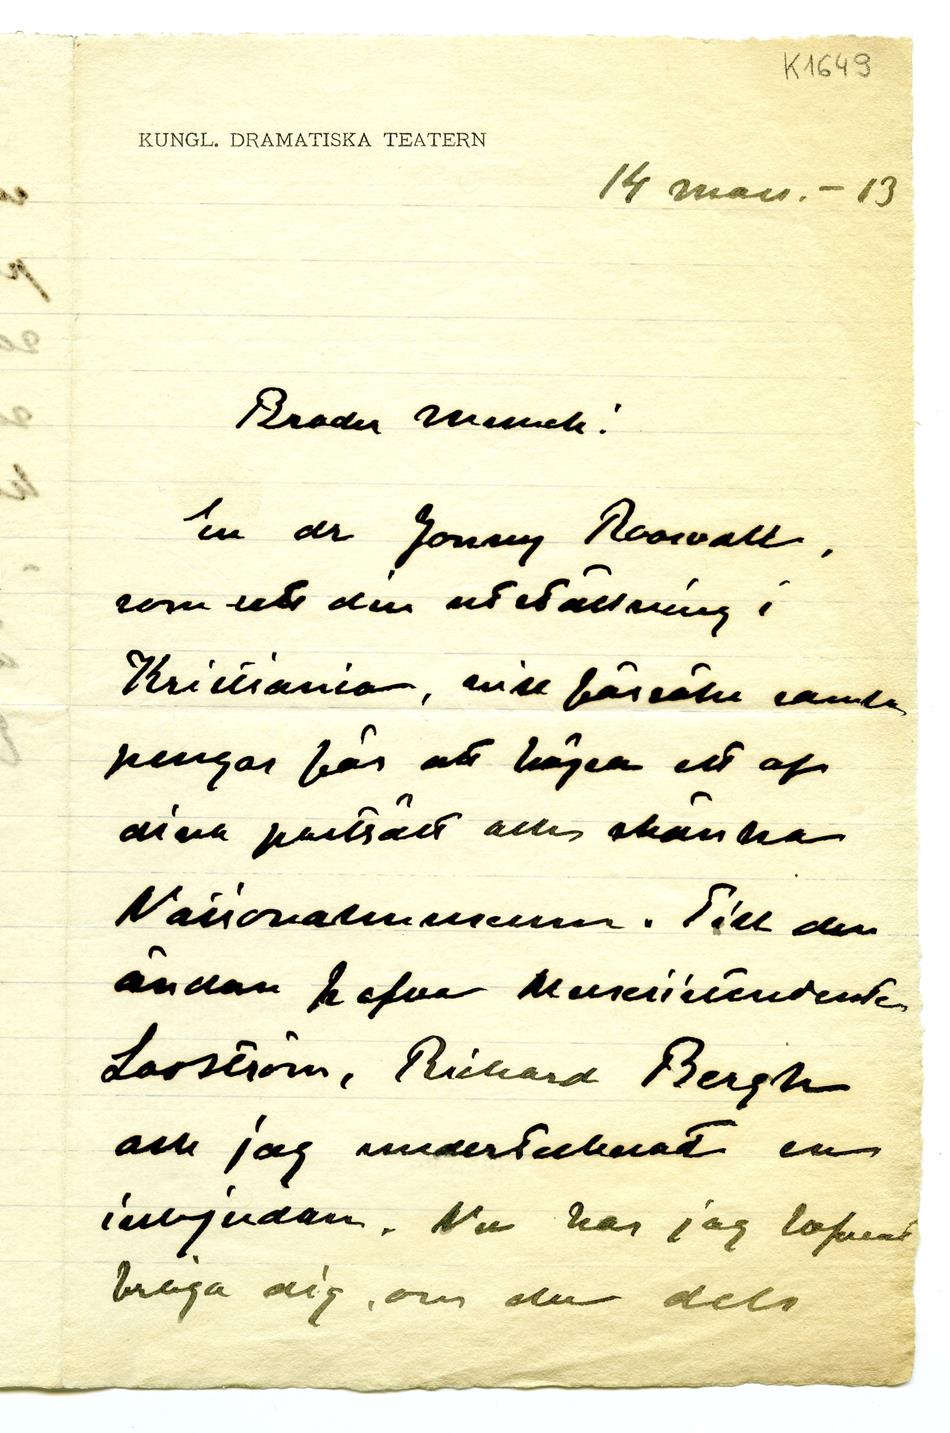 K1649
KUNGL. DRAMATISKA TEATERN
14 mars. – 13
Broder Munch!
En dr Jonny Roosvall,
som sett din utställning i
Kristiania, vill försöka samla
pengar för att köpa ett af
dina porträtt och skänka
Nationalmuseum. Till den
ändan hafva Museiintendenten
Looström, Richard Bergh
och jag undertecknat en
inbjudan. Nu har jag lofvat
fråga dig, om du dels